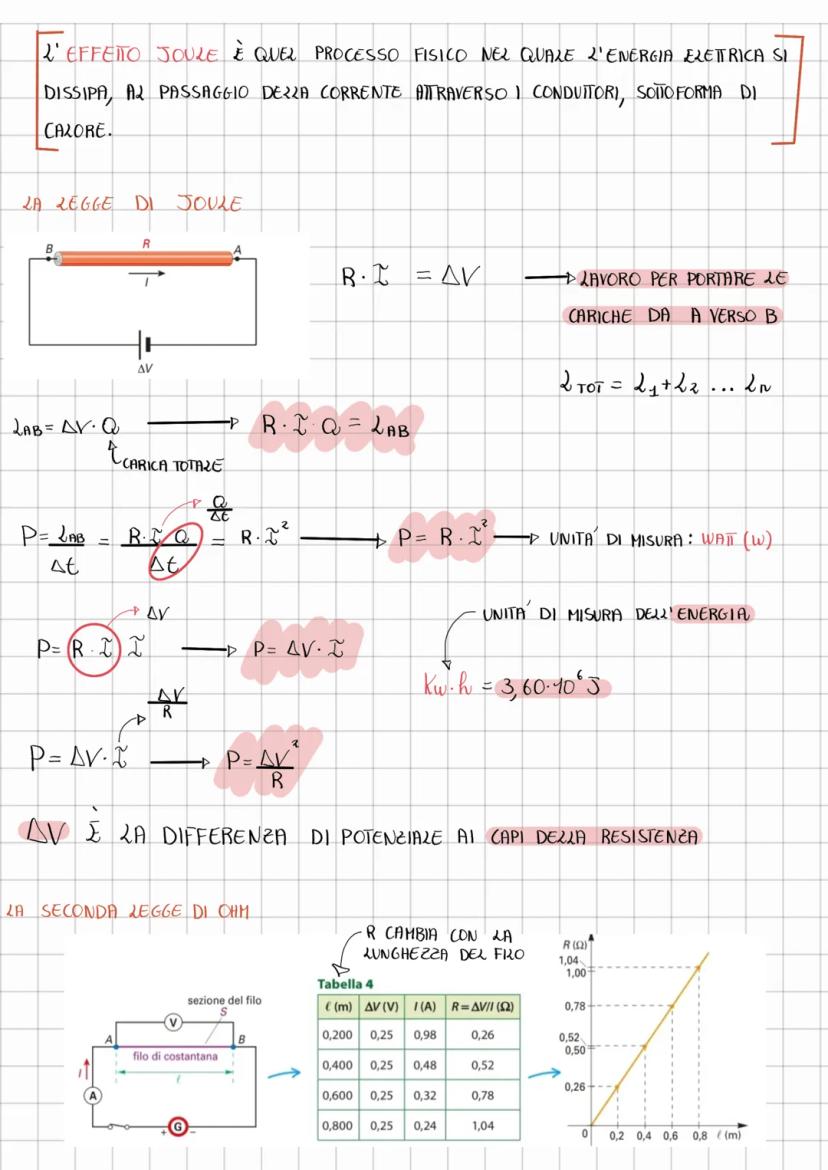 L'EFFETTO JOULE È QUEL PROCESSO FISICO NEL QUALE L'ENERGIA ELETTRICA SI
DISSIPA, AL PASSAGGIO DELLA CORRENTE ATTRAVERSO I CONDUTTORI, SOTTOFORMA DI
CALORE.
LA LEGGE DI JOULE
B R A
I
ΔV
R·I = ΔV → LAVORO PER PORTARE LE
CARICHE DA A VERSO B
L TOT = L1+L2 ... Ln
LAB = ΔV·Q → R·I·Q = LAB
CARICA TOTALE
Q/Δt
P = LAB/Δt = R·I·Q/Δt = R·I² → P = R·I² → UNITÀ DI MISURA: WATT (W)
ΔV
P = R·I I → P = ΔV·I
UNITÀ DI MISURA DELL'ENERGIA
Kw·h = 3,60·10⁶ J
ΔV/R
P = ΔV·I → P = ΔV²/R
ΔV È LA DIFFERENZA DI POTENZIALE AI CAPI DELLA RESISTENZA
LA SECONDA LEGGE DI OHM
R CAMBIA CON LA
LUNGHEZZA DEL FILO
sezione del filo
S
V
A B
filo di costantana
l
I
A
+ G −
Tabella 4
ℓ (m) ΔV (V) I (A) R=ΔV/I (Ω)
0,200 0,25 0,98 0,26
0,400 0,25 0,48 0,52
0,600 0,25 0,32 0,78
0,800 0,25 0,24 1,04
R (Ω)
1,04
1,00
0,78
0,52
0,50
0,26
0 0,2 0,4 0,6 0,8 ℓ (m)